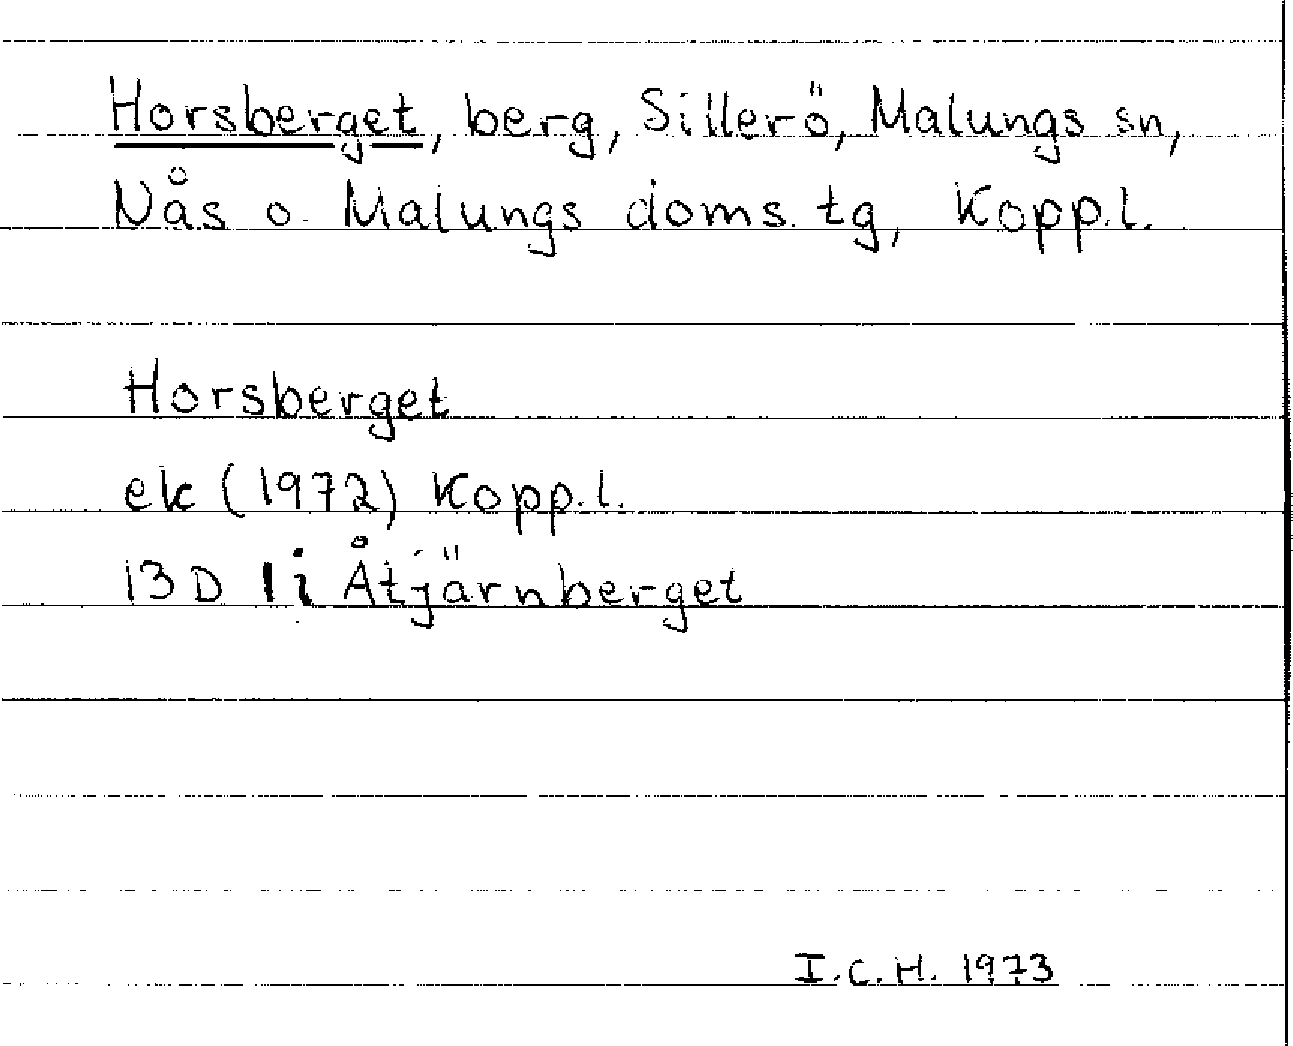 Horsberget, berg, Sillerö, Malungs sn,
Nås o. Malungs doms. tg, Kopp.l.
Horsberget
ek (1972) Kopp.l.
13 D 1i Åtjärnberget
I.C.H. 1973